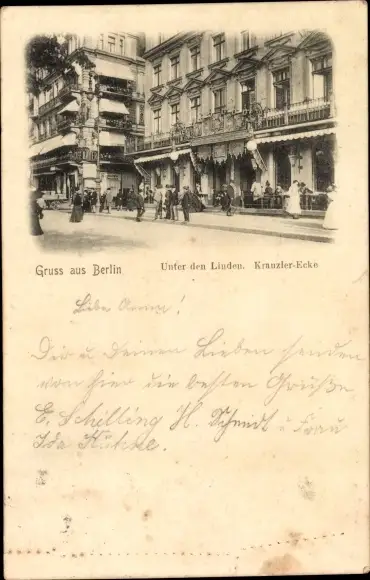 Gruss aus Berlin
Unter den Linden. Kranzler-Ecke
Liebe Anna!
Dir u. Deinen Lieben senden
von hier die besten Grüße
E. Schilling H. Schmidt u Frau
Ida